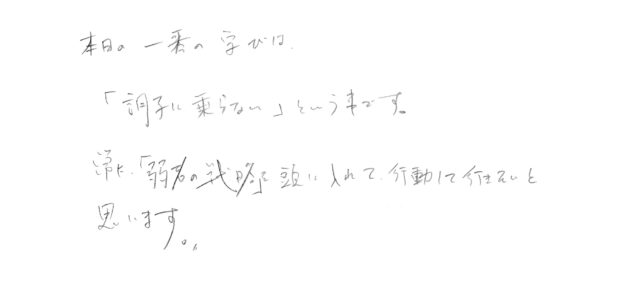 本日の一番の学びは、
「調子に乗らない」という事です。
常に、「弱者の戦略」を頭に入れて、行動して行きたいと
思います。